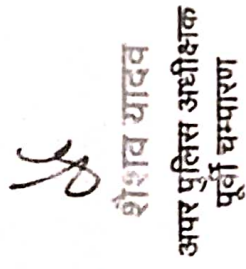 शैशव यादव
अपर पुलिस अधीक्षक
पूर्वी चम्पारण